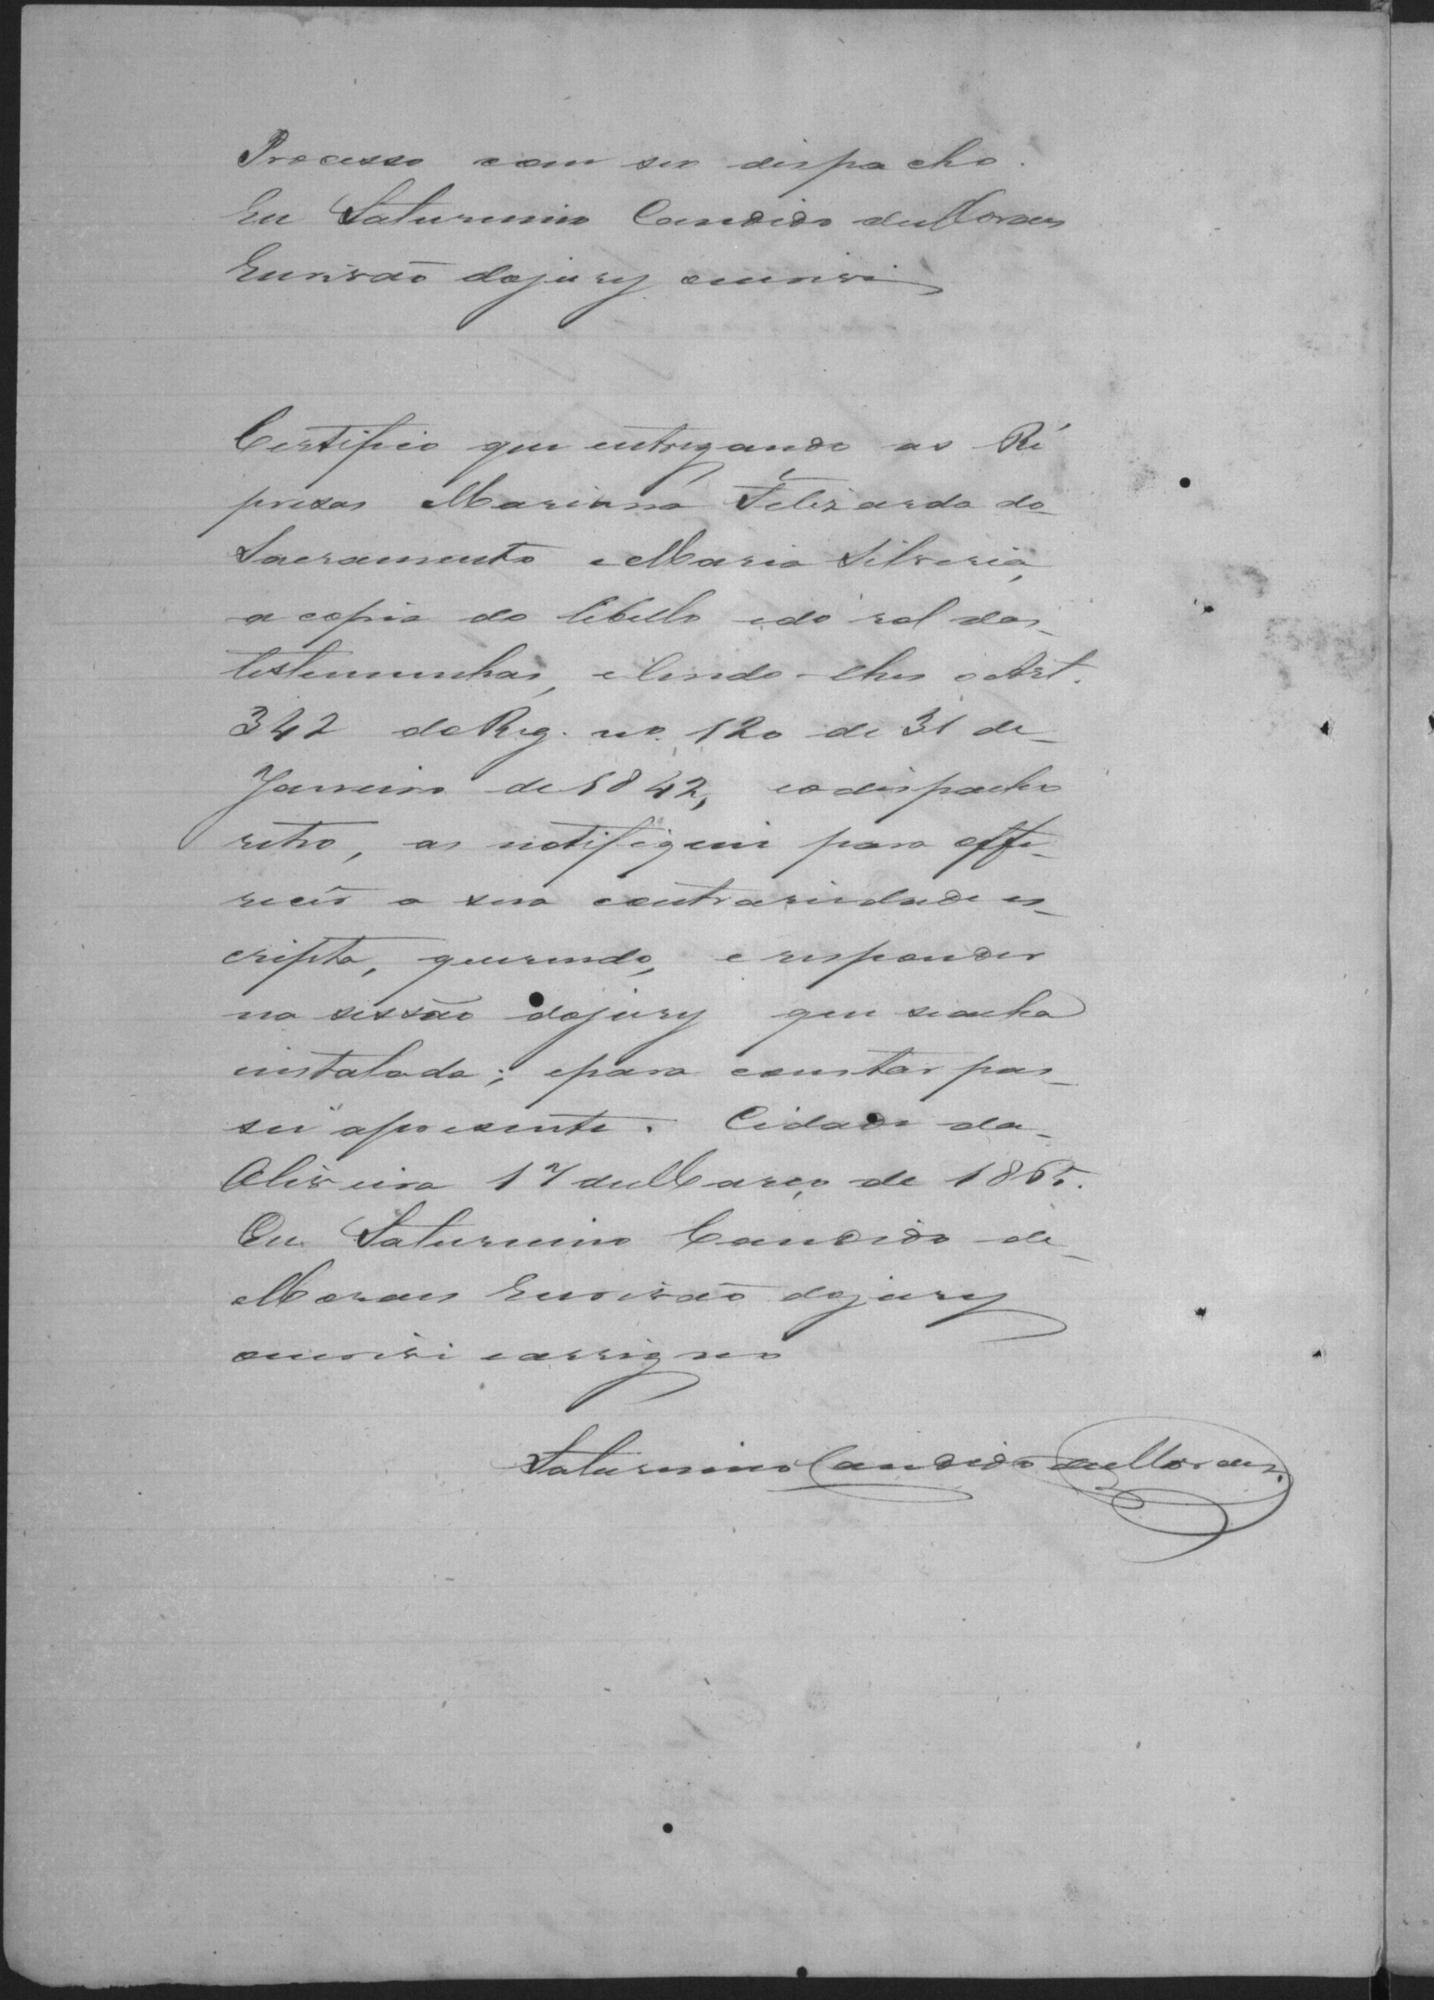 Processo com seu dispacho.
Eu Saturnino Candido de Moraes
Escrivão do jury o escrivi
Certifico que entregando as Ré
prezas Marianna Felizarda do
Sacramento e Maria Silveria,
a copia do libello e do rol das
testemunhas, e lendo-lhes o Art.
342 do Reg. no. 120 de 31 de
Janeiro de 1842, e o dispacho
retro, as notifiquei para offe-
recer a sua contrariedade es-
cripta, querendo, e responder
na sessão do jury que se acha
instalada; e para constar pas-
sei a presente. Cidade da
Oliveira 17 de Março de 1865.
Eu Saturnino Candido de
Moraes Escrivão do jury
o escrivi e assigno
Saturnino Candido de Moraes.